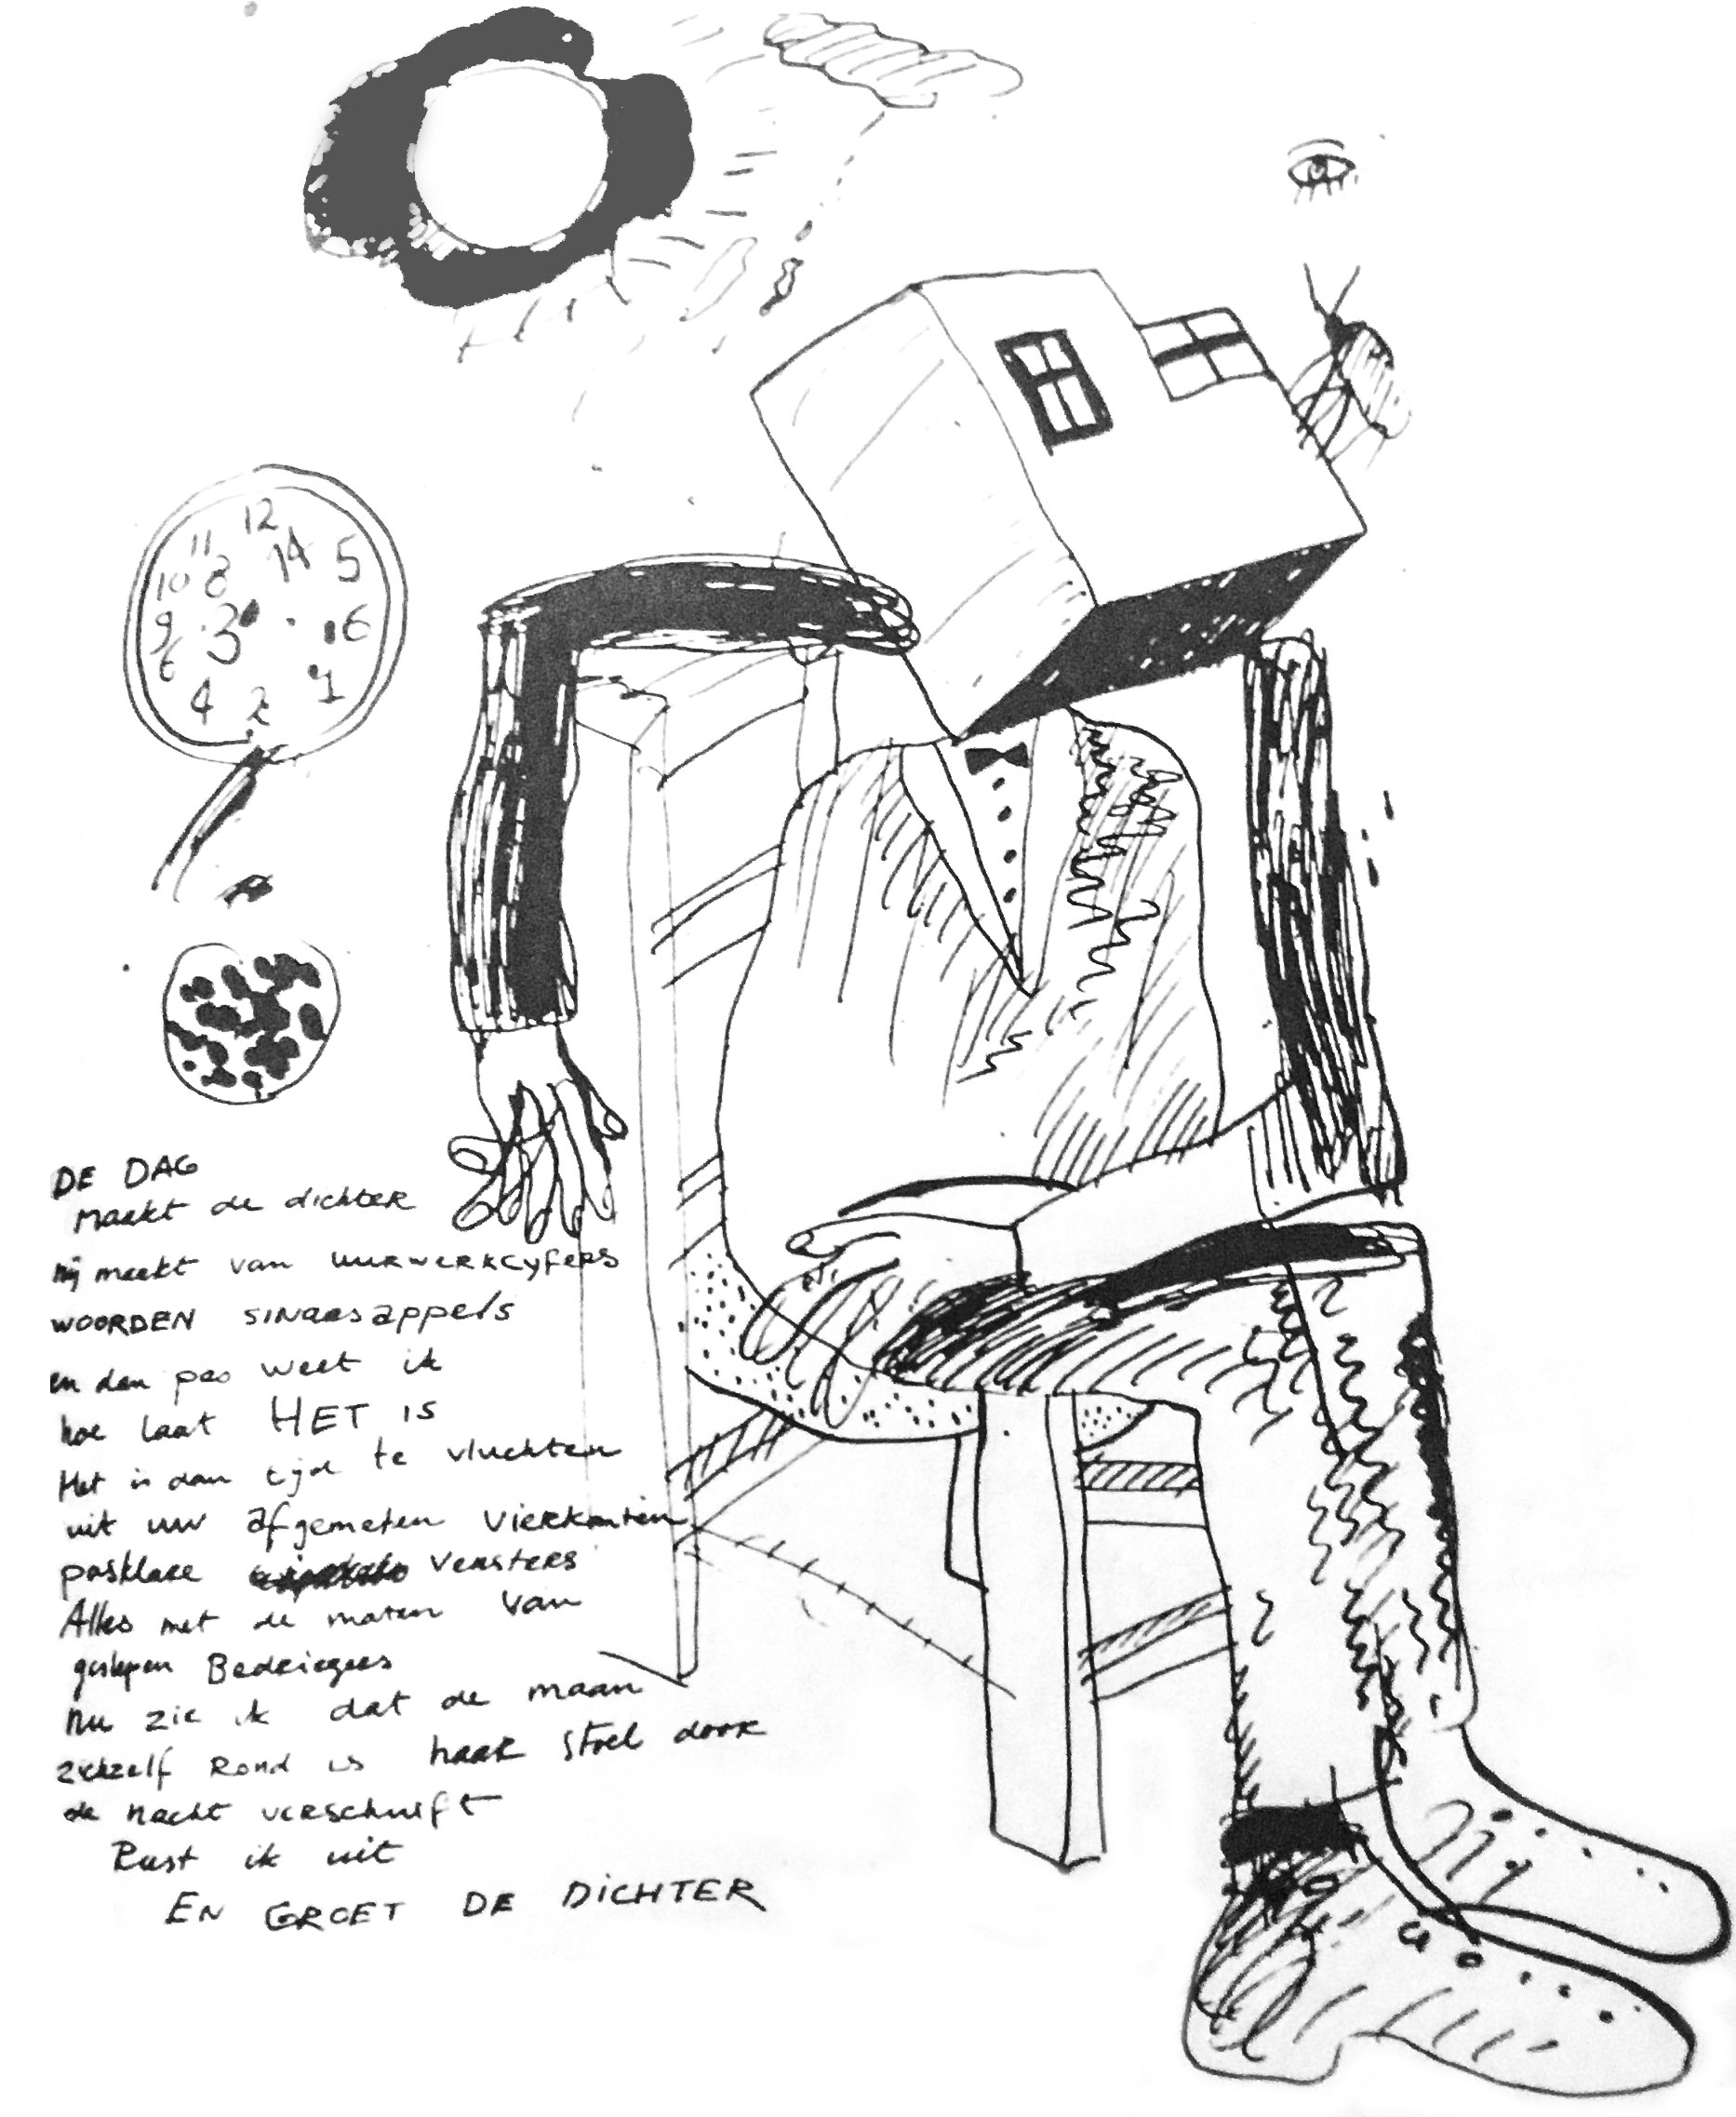 12
11 14 5
10 8
9 3 6
6
4 2 1
DE DAG
Maakt de dichter
hij maakt van uurwerkcyfers
WOORDEN sinaasappels
en dan pas weet ik
hoe laat HET IS
Het is dan tijd te vluchten
uit uw afgemeten vierkanten
pasklare vensters
Alles met de maten van
geslepen Bedriegers
Nu zie ik dat de maan
zichzelf rond is haar stoel door
de nacht verschuift
Rust ik uit
EN GROET DE DICHTER